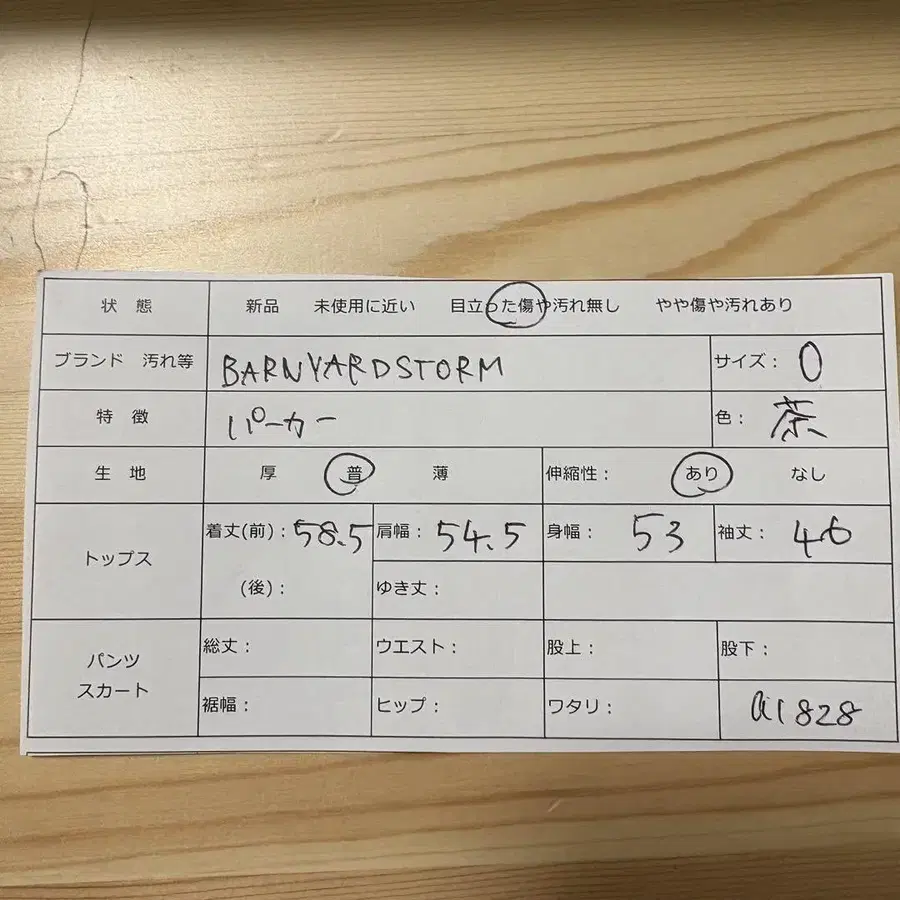 状 態 新品 未使用に近い 目立った傷や汚れ無し やや傷や汚れあり
ブランド 汚れ等 BARNYARDSTORM サイズ： 0
特 徴 パーカー 色： 茶
生 地 厚 普 薄 伸縮性： あり なし
トップス 着丈(前)：58.5 肩幅：54.5 身幅：53 袖丈：46
(後)： ゆき丈：
パンツ スカート 総丈： ウエスト： 股上： 股下：
裾幅： ヒップ： ワタリ： a1828